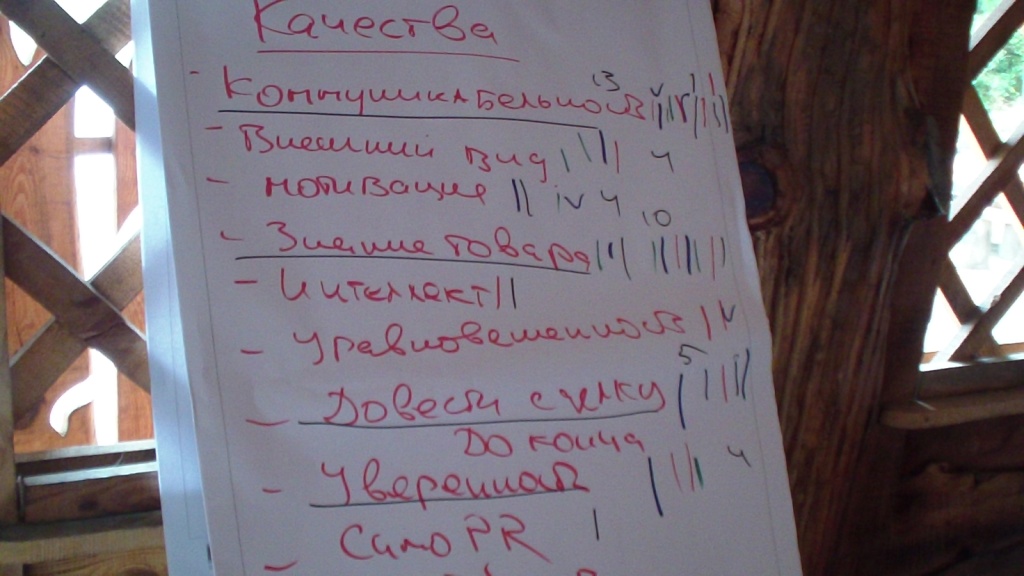 Качества
- Коммуникабельность 13
- Внешний вид 4
- мотивация IV 4
- Знание товара 10
- Интеллект
- Уравновешенность
- Довести сделку 5
до конца
- Уверенность 4
- Само PR